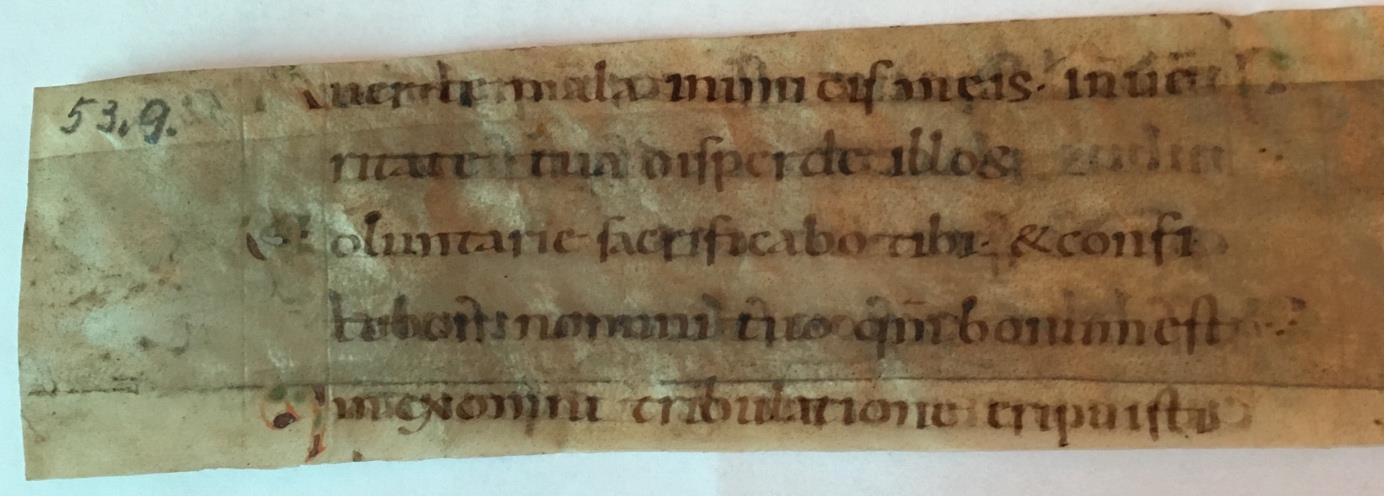 53.9.
Auerte mala inimicis meis· in ue
ritate tua disperde illos;
Voluntarie sacrificabo tibi· & confi
tebor nomini tuo qm̄ bonum est
Qm̄ ex omni tribulatione eripuisti